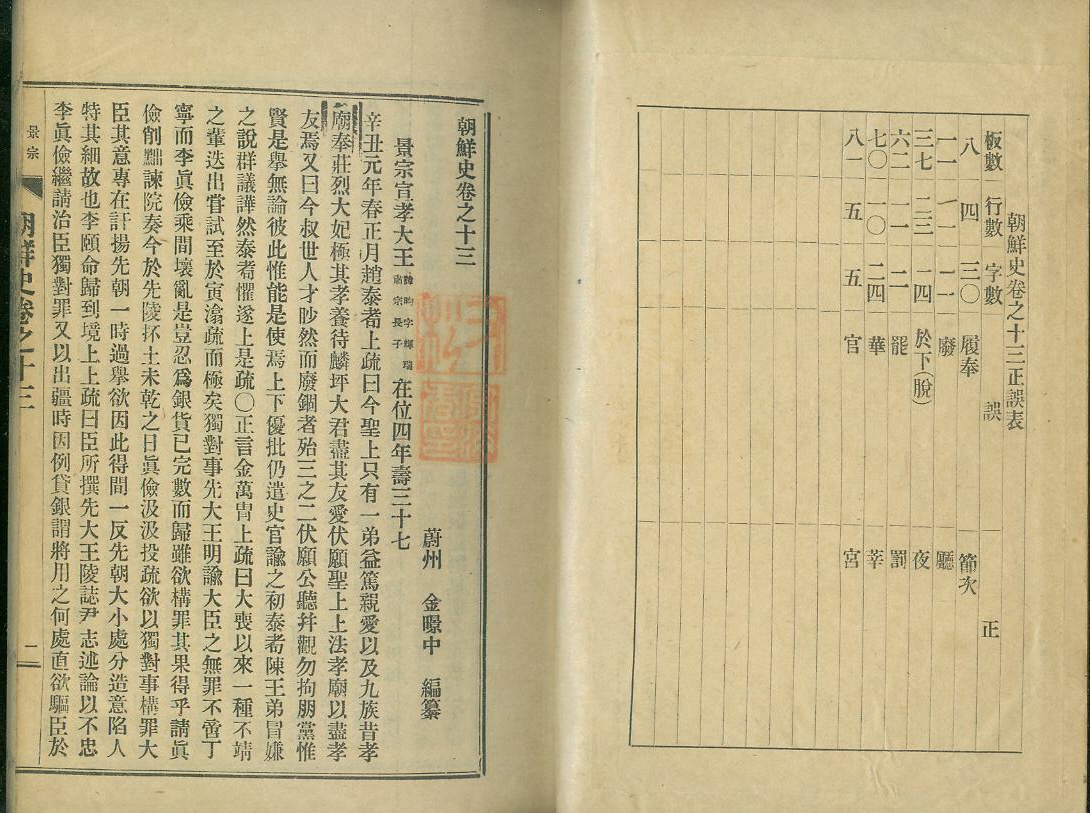 朝鮮史卷之十三正誤表
板數 行數 字數 誤 正
八 四 三〇 履奉 節次
一一 一一 二一 廢 廳
三七 二三 一四 於下(脫) 夜
六二 一一 二 罷 罰
七〇 一〇 二四 華 莘
八一 五 五 官 宮
朝鮮史卷之十三
蔚州 金暻中 編纂
景宗宣孝大王 諱昀字輝瑞肅宗長子 在位四年壽三十七
辛丑元年春正月趙泰耉上疏曰今聖上只有一弟益篤親愛以及九族昔孝
廟奉莊烈大妃極其孝養待麟坪大君盡其友愛伏願聖上上法孝廟以盡孝
友焉又曰今叔世人才眇然而廢錮者殆三之二伏願公聽幷觀勿拘朋黨惟
賢是擧無論彼此惟能是使焉上下優批仍遣史官諭之初泰耉陳王弟冒嫌
之說群議譁然泰耉懼遂上是疏〇正言金萬胄上疏曰大喪以來一種不靖
之輩迭出嘗試至於寅滃疏而極矣獨對事先大王明諭大臣之無罪不啻丁
寧而李眞儉乘間壞亂是豈忍爲銀貨已完數而歸雖欲構罪其果得乎請眞
儉削黜諫院奏今於先陵抔土未乾之日眞儉汲汲投疏欲以獨對事構罪大
臣其意專在訐揚先朝一時過擧欲因此得間一反先朝大小處分造意陷人
特其細故也李頤命歸到境上上疏曰臣所撰先大王陵誌尹志述論以不忠
李眞儉繼請治臣獨對罪又以出疆時因例貸銀謂將用之何處直欲驅臣於
景宗
朝鮮史卷之十三
一